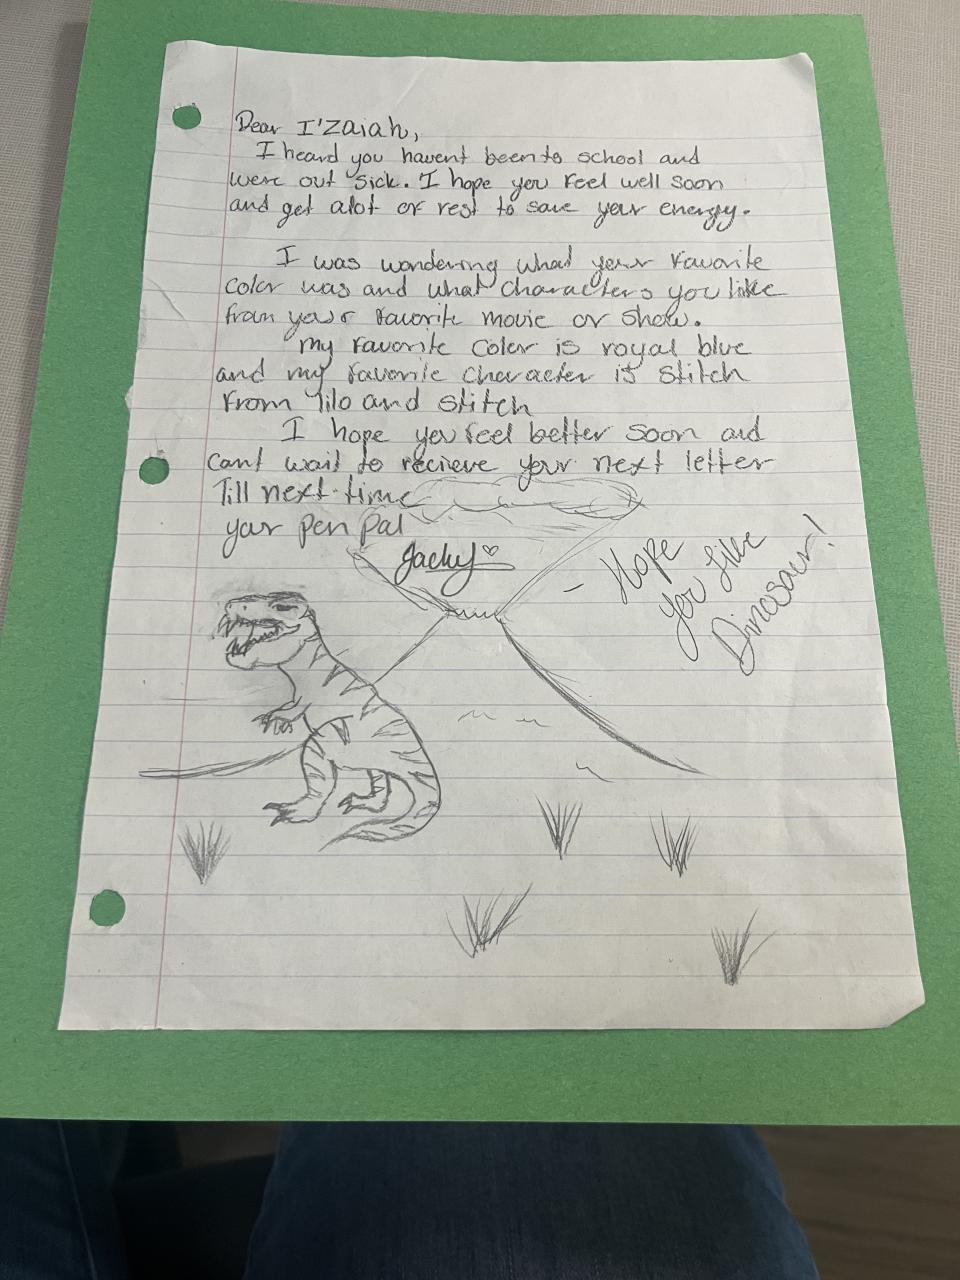 Dear I'Zaiah,
I heard you havent been to school and
were out sick. I hope you feel well soon
and get alot of rest to save your energy.
I was wondering what your favorite
color was and what characters you like
from your favorite movie or show.
my favorite color is royal blue
and my favorite character is stitch
from lilo and stitch
I hope you feel better soon and
cant wait to recieve your next letter
Till next time
your pen pal
Jacky ♡
- Hope
you like
Dinosaur!